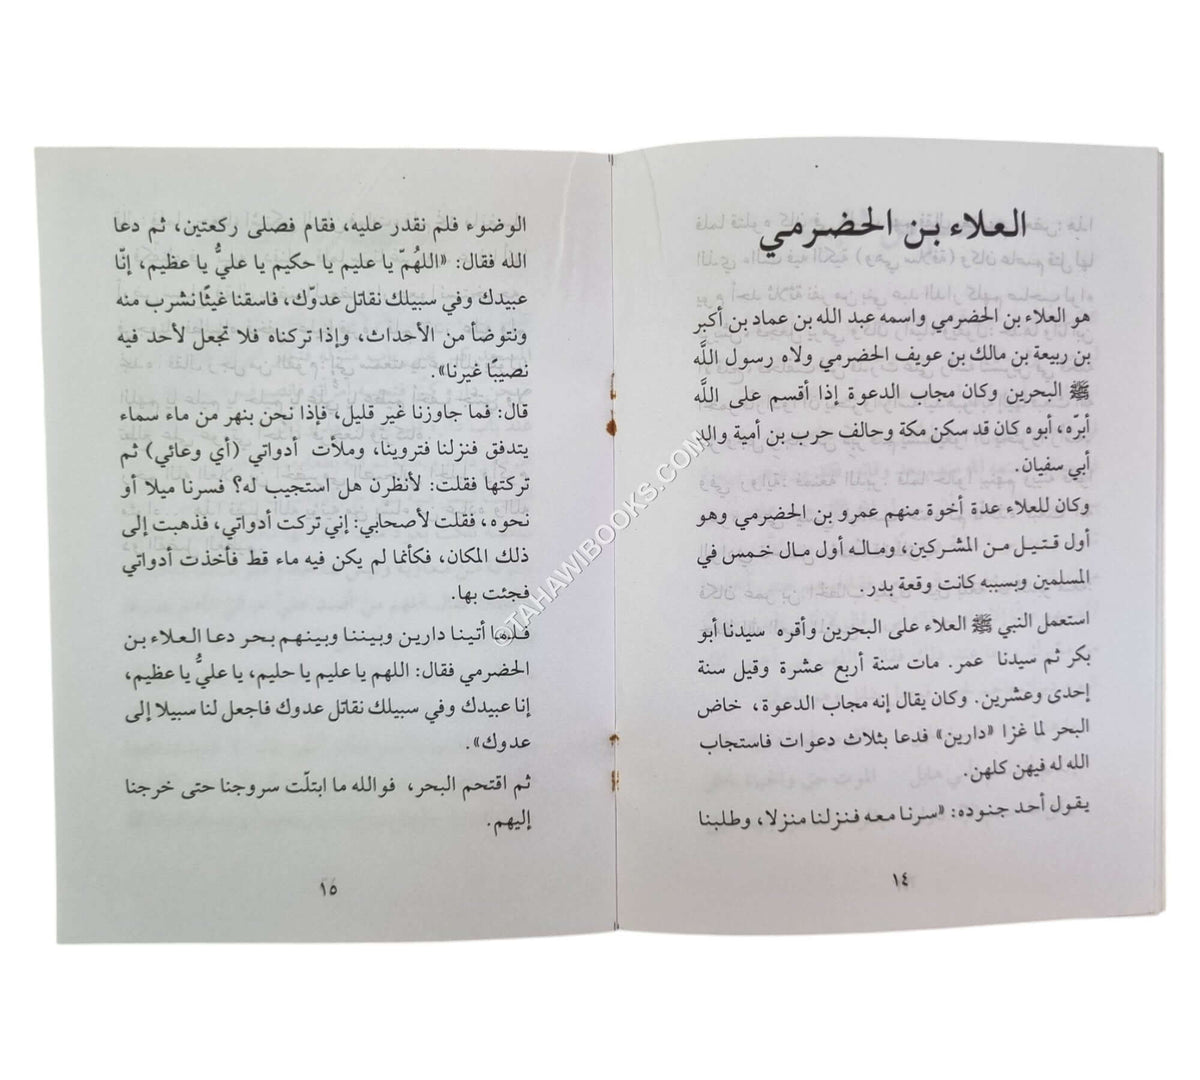 العلاء بن الحضرمي
هو العلاء بن الحضرمي واسمه عبد الله بن عماد بن أكبر
بن ربيعة بن مالك بن عويف الحضرمي ولاه رسول اللَّه
ﷺ البحرين وكان مجاب الدعوة إذا أقسم على اللَّه
أبرّه، أبوه كان قد سكن مكة وحالف حرب بن أمية والد
أبي سفيان.
وكان للعلاء عدة أخوة منهم عمرو بن الحضرمي وهو
أول قتيل من المشركين، وماله أول مال خمس في
المسلمين وبسببه كانت وقعة بدر.
استعمل النبي ﷺ العلاء على البحرين وأقره سيدنا أبو
بكر ثم سيدنا عمر. مات سنة أربع عشرة وقيل سنة
إحدى وعشرين. وكان يقال إنه مجاب الدعوة، خاض
البحر لما غزا «دارين» فدعا بثلاث دعوات فاستجاب
الله له فيهن كلهن.
يقول أحد جنوده: «سرنا معه فنزلنا منزلا، وطلبنا
١٤
الوضوء فلم نقدر عليه، فقام فصلى ركعتين، ثم دعا
الله فقال: «اللهُمّ يا عليم يا حكيم يا عليُّ يا عظيم، إنّا
عبيدك وفي سبيلك نقاتل عدوّك، فاسقنا غيثًا نشرب منه
ونتوضأ من الأحداث، وإذا تركناه فلا تجعل لأحد فيه
نصيبًا غيرنا».
قال: فما جاوزنا غير قليل، فإذا نحن بنهر من ماء سماء
يتدفق فنزلنا فتروينا، وملأت أدواتي (أي وعائي) ثم
تركتها فقلت: لأنظرن هل استجيب له؟ فسرنا ميلا أو
نحوه، فقلت لأصحابي: إني تركت أدواتي، فذهبت إلى
ذلك المكان، فكأنما لم يكن فيه ماء قط فأخذت أدواتي
فجئت بها.
فلما أتينا دارين وبيننا وبينهم بحر دعا العلاء بن
الحضرمي فقال: اللهم يا عليم يا حليم، يا عليُّ يا عظيم،
إنا عبيدك وفي سبيلك نقاتل عدوك فاجعل لنا سبيلا إلى
عدوك».
ثم اقتحم البحر، فوالله ما ابتلّت سروجنا حتى خرجنا
إليهم.
١٥
©TAHAWIBOOKS.COM